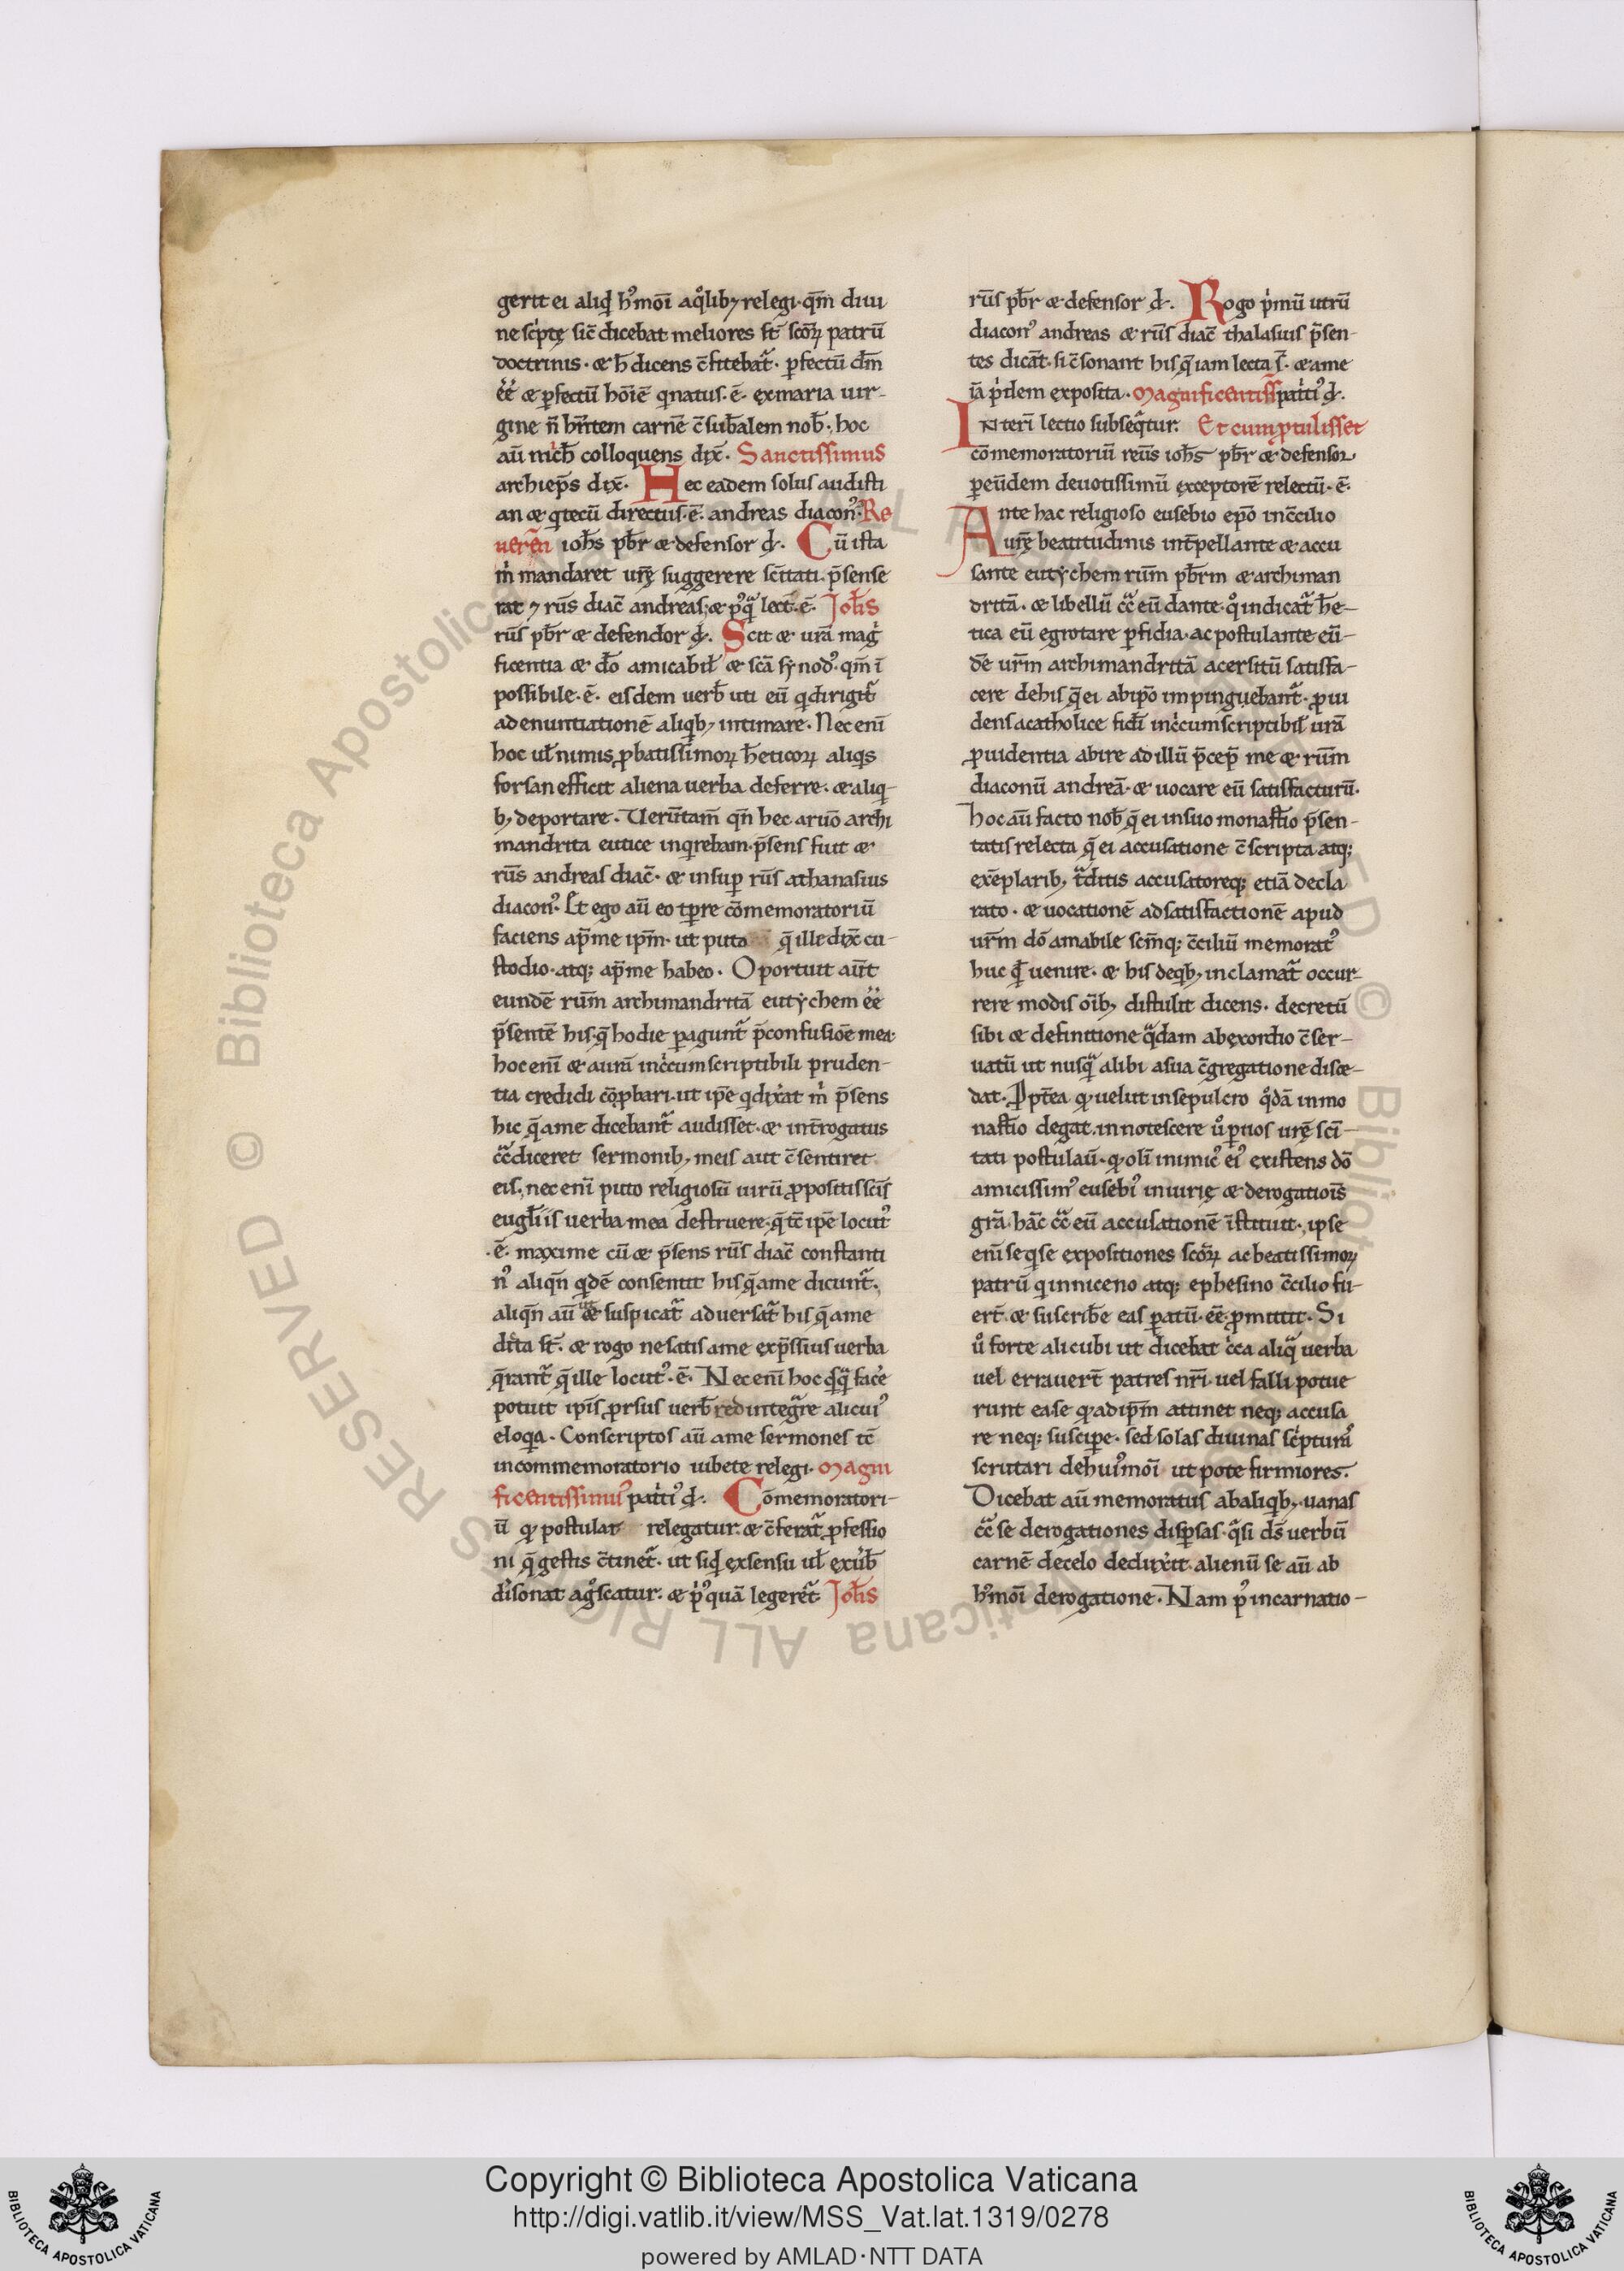 gerit ei aliqd hꝰmōi aqͦlibꝫ relegi· qm̄ diui
ne sc̍ptę sic̄ dicebat meliores st̄ scōꝝ patrū
doctrinis· & h̄ dicens c̄fitebat᷑· ꝑfectū dm̄
ee̍ & ꝑfectū hoīē qi natus·ē· ex maria uir-
gine n̄ hn̄tem carnē c̄sub̄alem nob̄· hoc
aū mc̍h̄ colloquens dix̄· Sanctissimus
archiep̄s dix̄· Hec eadem solus audisti
an & qi tecū directus·ē· andreas diaconꝰ· Re
ueren̄ ioh̄s pb̄r & defensor d̵· Cū ista
m̍ mandaret urę̄ suggerere sc̄itati· p̄sense
rat ⁊ rūs diac̄ andreas; & pꝰqᷓ lect·ē· Joh̄s
rūs pb̄r & defendor d̵· Scit & urā magͥ
ficentia & dō amicabil̄ & scā synodꝰ· qm̄ ī
possibile·ē· eisdem uerb̄ uti eū qi dirigit᷑
ad enuntiationē aliqibꝫ intimare· Nec enī
hoc ul̄ nimis ꝓbatissimoꝝ h̄eticoꝝ aliqis
forsan efficit aliena uerba deferre· & aliqi-
bꝫ deportare· Uerūtam̄ qn̄ hec a ruō archi
mandrita eutice inqirebam· p̄sens fuit &
rūs andreas diac̄· & insuꝑ rūs athanasius
diaconꝰ· Et ego aū eo tp̄re cōmemoratoriū
faciens ap̄ me ip̄m· ut puto q̄ ille dix̄ cu-
stodio· atqꝫ ap̄ me habeo· Oportuit aūt
eundē rūm archimandritā eutychem ee̍
p̄sentē his· q̄ hodie ꝑagunt᷑ p̄ confusiōe mea·
hoc enī & a urā inc̍cumscriptibili pruden-
tia credidi cōꝓbari· ut ip̄e qi dix̍at m̍ p̄sens
hic q̄ a me dicebant᷑ audisset· & int̄rogatus
cc̄diceret sermonibꝫ meis aut c̄sentiret
eis, nec enī puto religiosū uirū ꝓpositis scīs
eugl̄iis uerba mea destruere· q̄ tc̄ ip̄e locut᷒
·ē· maxime cū & p̄sens rūs diac̄ constanti
nꝰ aliqn̄ qidē consentit his q̄ a me dicunt᷑·
aliqn̄ aū ut de suspicat᷑ aduersat᷑ his q̄ a me
dc̍ta st̄· & rogo ne satis a me exp̄ssius uerba
q̄rant᷑ q̄ ille locutꝰ·ē· Nec enī hoc qisqᷓ face̍
potuit ip̄is ꝓrsus uerb̄ redintegᷓre alicuiꝰ
eloqia· Conscriptos aū a me sermones tc̄
in commemoratorio iubete relegi· Magni
ficentissimuꝰ patc̍iꝰ d̵· Cōmemoratori-
ū qd̵ postulat relegatur· & c̄ferat᷑ ꝓfessio
ni q̄ gestis c̄tinet᷑· ut siqd ex sensu ul̄ ex u̍b̄
dis̍onat agͦscatur· & p̍ꝰquā legeret᷑ Joh̄s
rūs pb̄r & defensor d̵· Rogo p̍mū utrū
diaconꝰ andreas & rūs diac̄ thalasius p̄sen-
tes dicāt· si c̄sonant his q̄ iam lecta s̄· & a me
iā p̍dem exposita· Magnificentiss patc̍iꝰ d̵·
Interī lectio subseqᷓtur· Et cum ꝓtulisset
cōmemoratoriū reūs ioh̄s pb̄r & defensor
ꝑ eūdem deuotissimū exceptorē relectū·ē·
Ante hac religioso eusebio ep̄o in c̄cilio
urę̄ beatitudinis int̄pellante & accu
sante eutychem rūm pb̄rm & archiman
dritā· & libellū cc̄ eū dante· qͦ indicat᷑ h̄e-
tica eū egrotare ꝑfidia· ac postulante eū-
dē urm̄ archimandritā acersitū satisfa-
cere de his q̄ ei ab ip̄o impinguebant᷑· ꝓui
dens a catholice fidī inc̍cumscriptibil̄ urā
ꝓuidentia abire ad illū p̄cep̄ me & rūm
diaconū andreā· & uocare eū satisfacturū·
Hoc aū facto nob̄ q̄ ei in suo monast̄io p̄sen-
tatis relecta q̄ ei accusatione c̄scripta atqꝫ
exēplaribꝫ tᷓditis accusatoreqꝫ etiā decla
rato· & uocationē ad satisfactionē apud
urm̄ dō amabile scm̄qꝫ c̄ciliū memoratꝰ
huc qid uenire· & his de qibꝫ inclamat᷑ occur-
rere modis oībꝫ distulit dicens· decretū
sibi & definitione qᷓdam ab exordio c̄ser-
uatū ut nusqᷓ alibi a sua c̄gregatione disce-
dat· Ppt̄ea qd̵ uelut in sepulcro qͦdā in mo
nast̄io degat· innotescere uͦ ꝑ nos urę̄ scī-
tati postulaū· qd̵ olī inimicꝰ eiꝰ existens dō
amicissimꝰ eusebiꝰ iniurię & derogatiōis
grā· hāc cc̄ eū accusationē īstituit· ipse
enī seqi se expositiones scōꝝ ac beatissimoꝝ
patrū qi in niceno atqꝫ ephesino c̄cilio fu-
ert̄ & suscrib̄e eas paratū·ēē· ꝓmittit· Si
uͦ forte alicubi ut dicebat c̍ca aliqᷓ uerba
uel errauert̄ patres nrī· uel falli potue
runt ea se qd̵ ad ip̄m attinet neqꝫ accusa
re neqꝫ suscipe· sed solas diuinas sc̍pturaꝰ
scrutari de huiꝰmōi ut pote firmiores·
Dicebat aū memoratus ab aliqibꝫ· uanas
cc̄ se derogationes disp̄sas· qᷓsi ds̄ uerbū
carnē de celo dedux̍it· alienū se aū ab
hꝰmōi derogatione· Nam pꝰ incarnatio-
Copyright © Biblioteca Apostolica Vaticana
http://digi.vatlib.it/view/MSS_Vat.lat.1319/0278
powered by AMLAD·NTT DATA
BIBLIOTECA APOSTOLICA VATICANA
BIBLIOTECA APOSTOLICA VATICANA
© Biblioteca Apostolica Vaticana ALL RIGHTS RESERVED